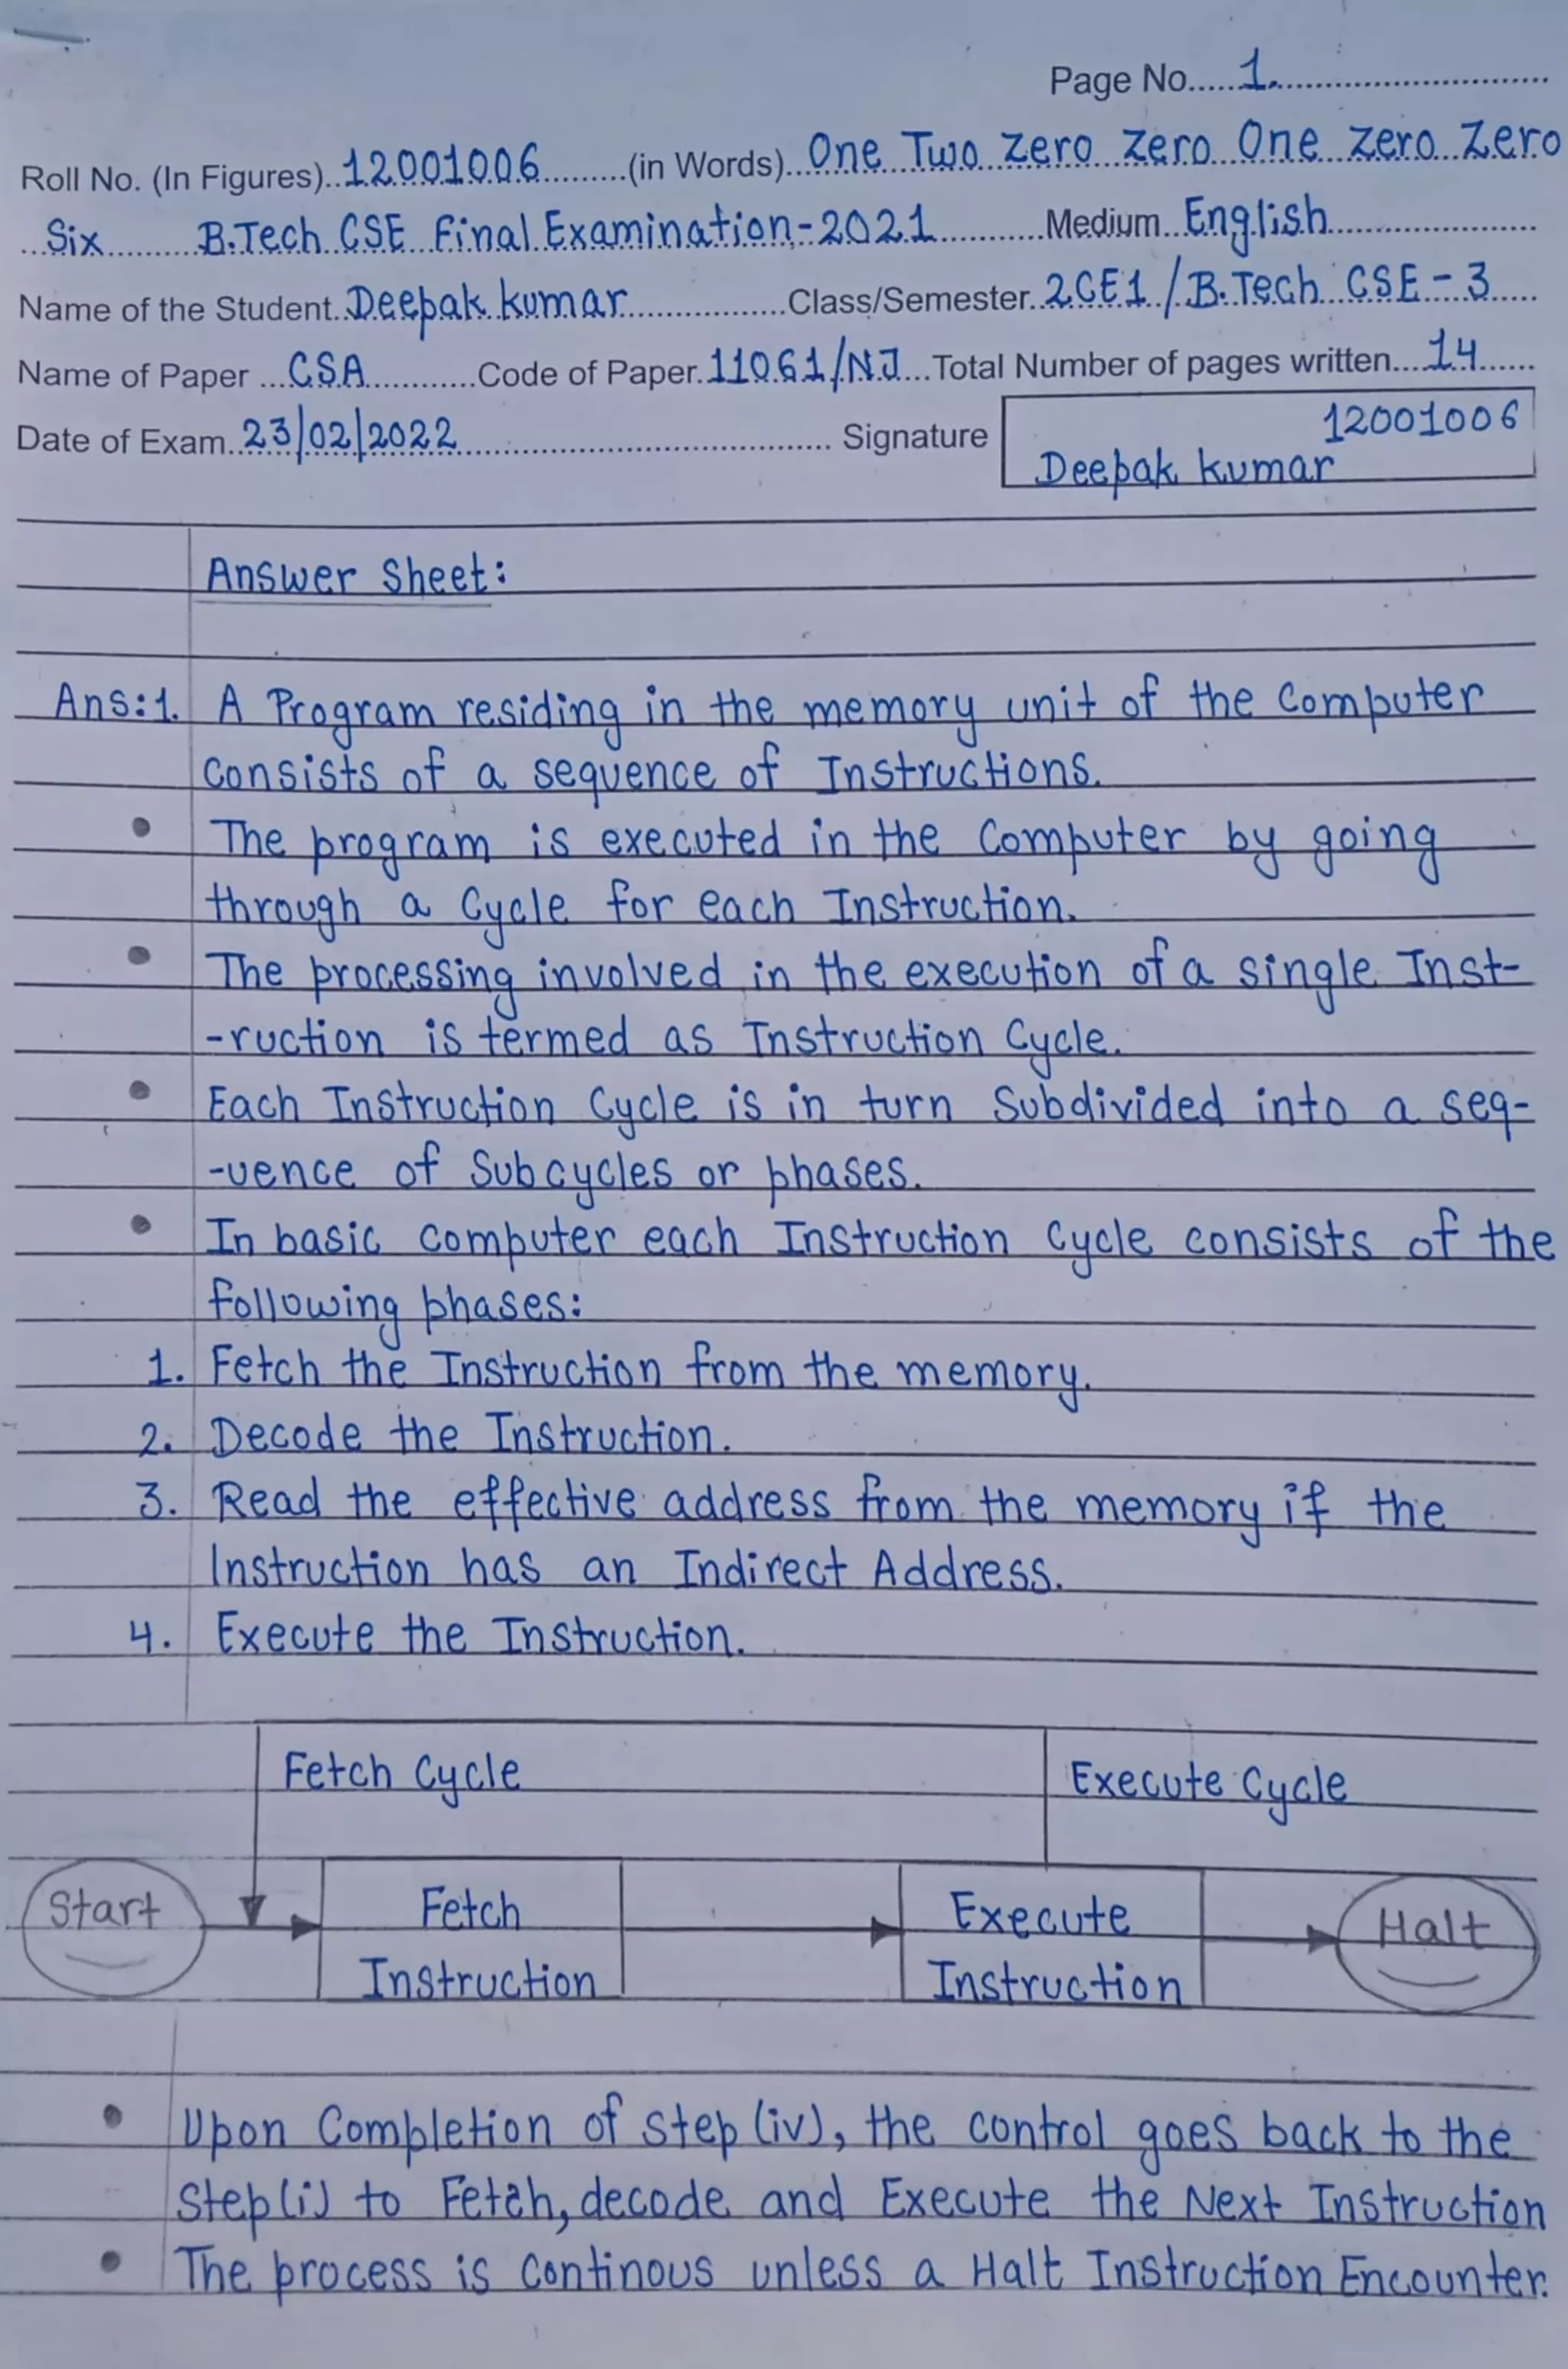 Page No.....1....................................
Roll No. (In Figures)..12001006.........(in Words)...One Two zero zero One zero zero
...Six..........B.Tech CSE Final Examination-2021...........Medium..English......................
Name of the Student..Deepak kumar.................Class/Semester..2CE1/B.Tech CSE-3.....
Name of Paper ...CSA............Code of Paper.11061/NJ...Total Number of pages written....14......
Date of Exam..23/02/2022....................................... Signature
12001006
Deepak kumar
Answer Sheet:
Ans:1. A Program residing in the memory unit of the Computer
consists of a sequence of Instructions.
• The program is executed in the Computer by going
through a Cycle for each Instruction.
• The processing involved in the execution of a single Inst-
-ruction is termed as Instruction Cycle.
• Each Instruction Cycle is in turn Subdivided into a seq-
-uence of Subcycles or phases.
• In basic computer each Instruction Cycle consists of the
following phases:
1. Fetch the Instruction from the memory.
2. Decode the Instruction.
3. Read the effective address from the memory if the
Instruction has an Indirect Address.
4. Execute the Instruction.
Fetch Cycle
Execute Cycle
Start
Fetch
Instruction
Execute
Instruction
Halt
• Upon Completion of step (iv), the control goes back to the
Step(i) to Fetch, decode and Execute the Next Instruction
• The process is Continous unless a Halt Instruction Encounter.